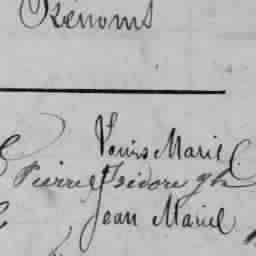 Prénoms
Louis Marie
Pierre Isidore
Jean Marie